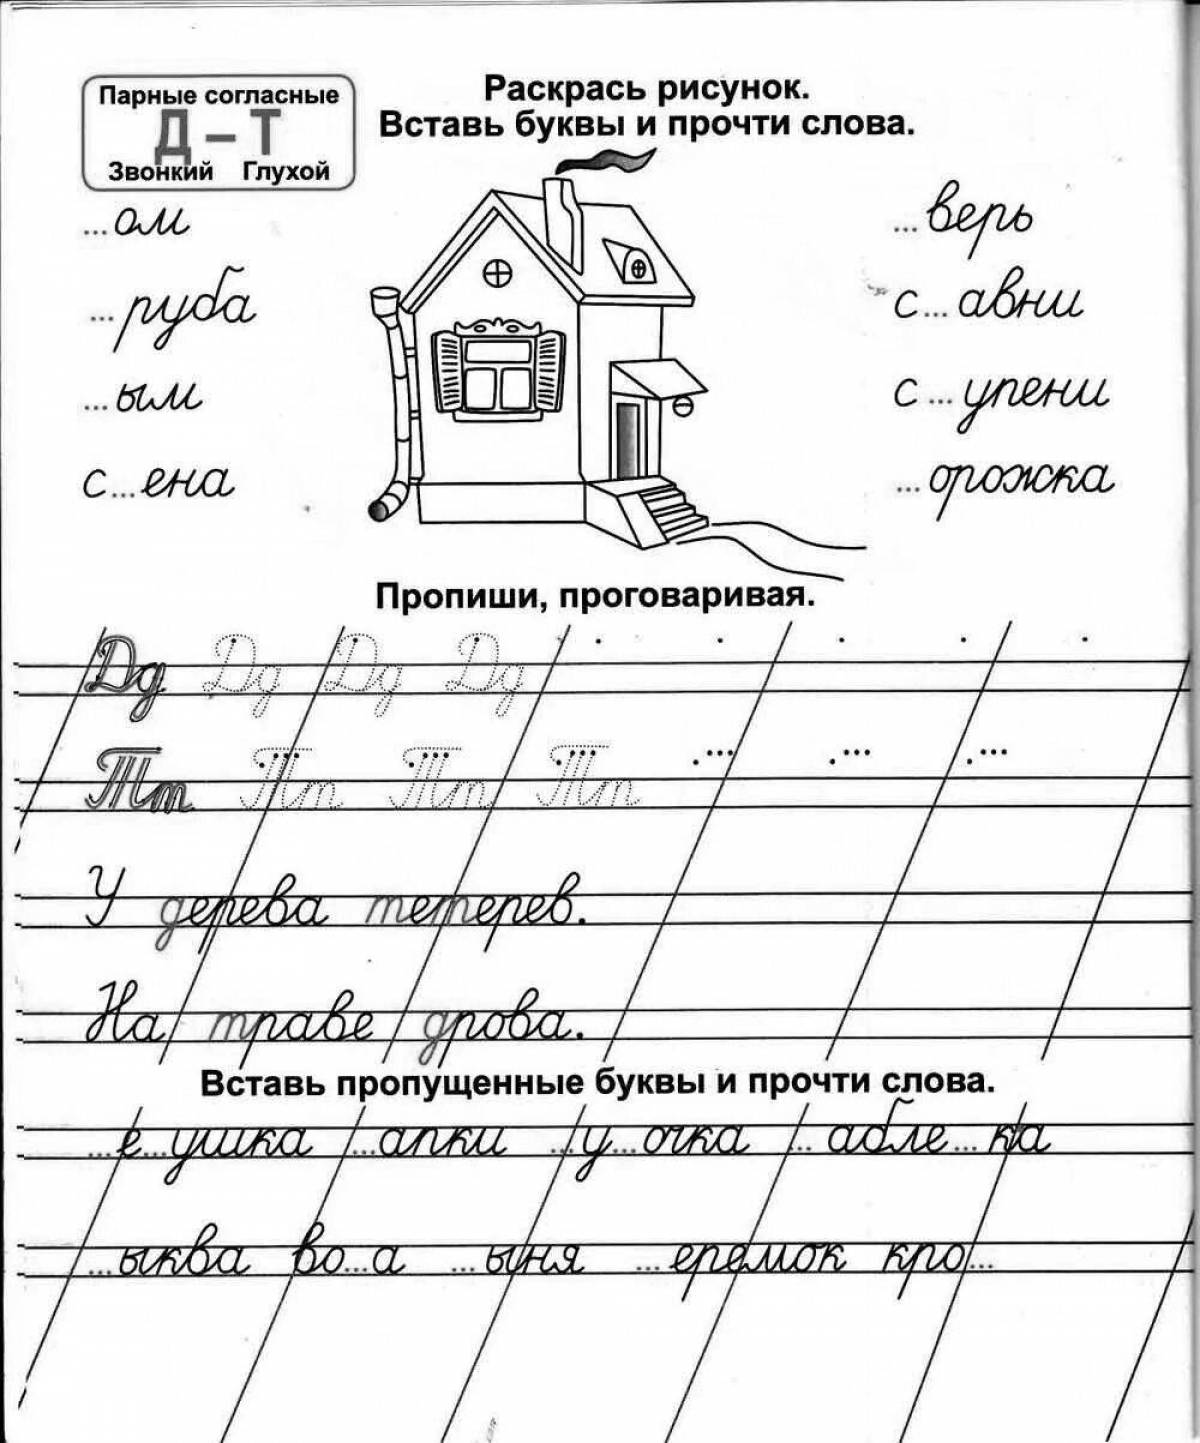 Парные согласные
Д – Т
Звонкий Глухой
Раскрась рисунок.
Вставь буквы и прочти слова.
...ом
...руба
...ым
с...ена
...верь
с...авни
с...упени
...орожка
Пропиши, проговаривая.
Дд Дд Дд Дд
Тт Тт Тт Тт
У дерева тетерев.
На траве дрова.
Вставь пропущенные буквы и прочти слова.
...е...ушка ...апки ...у...очка ...абле...ка
...ыква во...а ...ыня ...еремок кро...